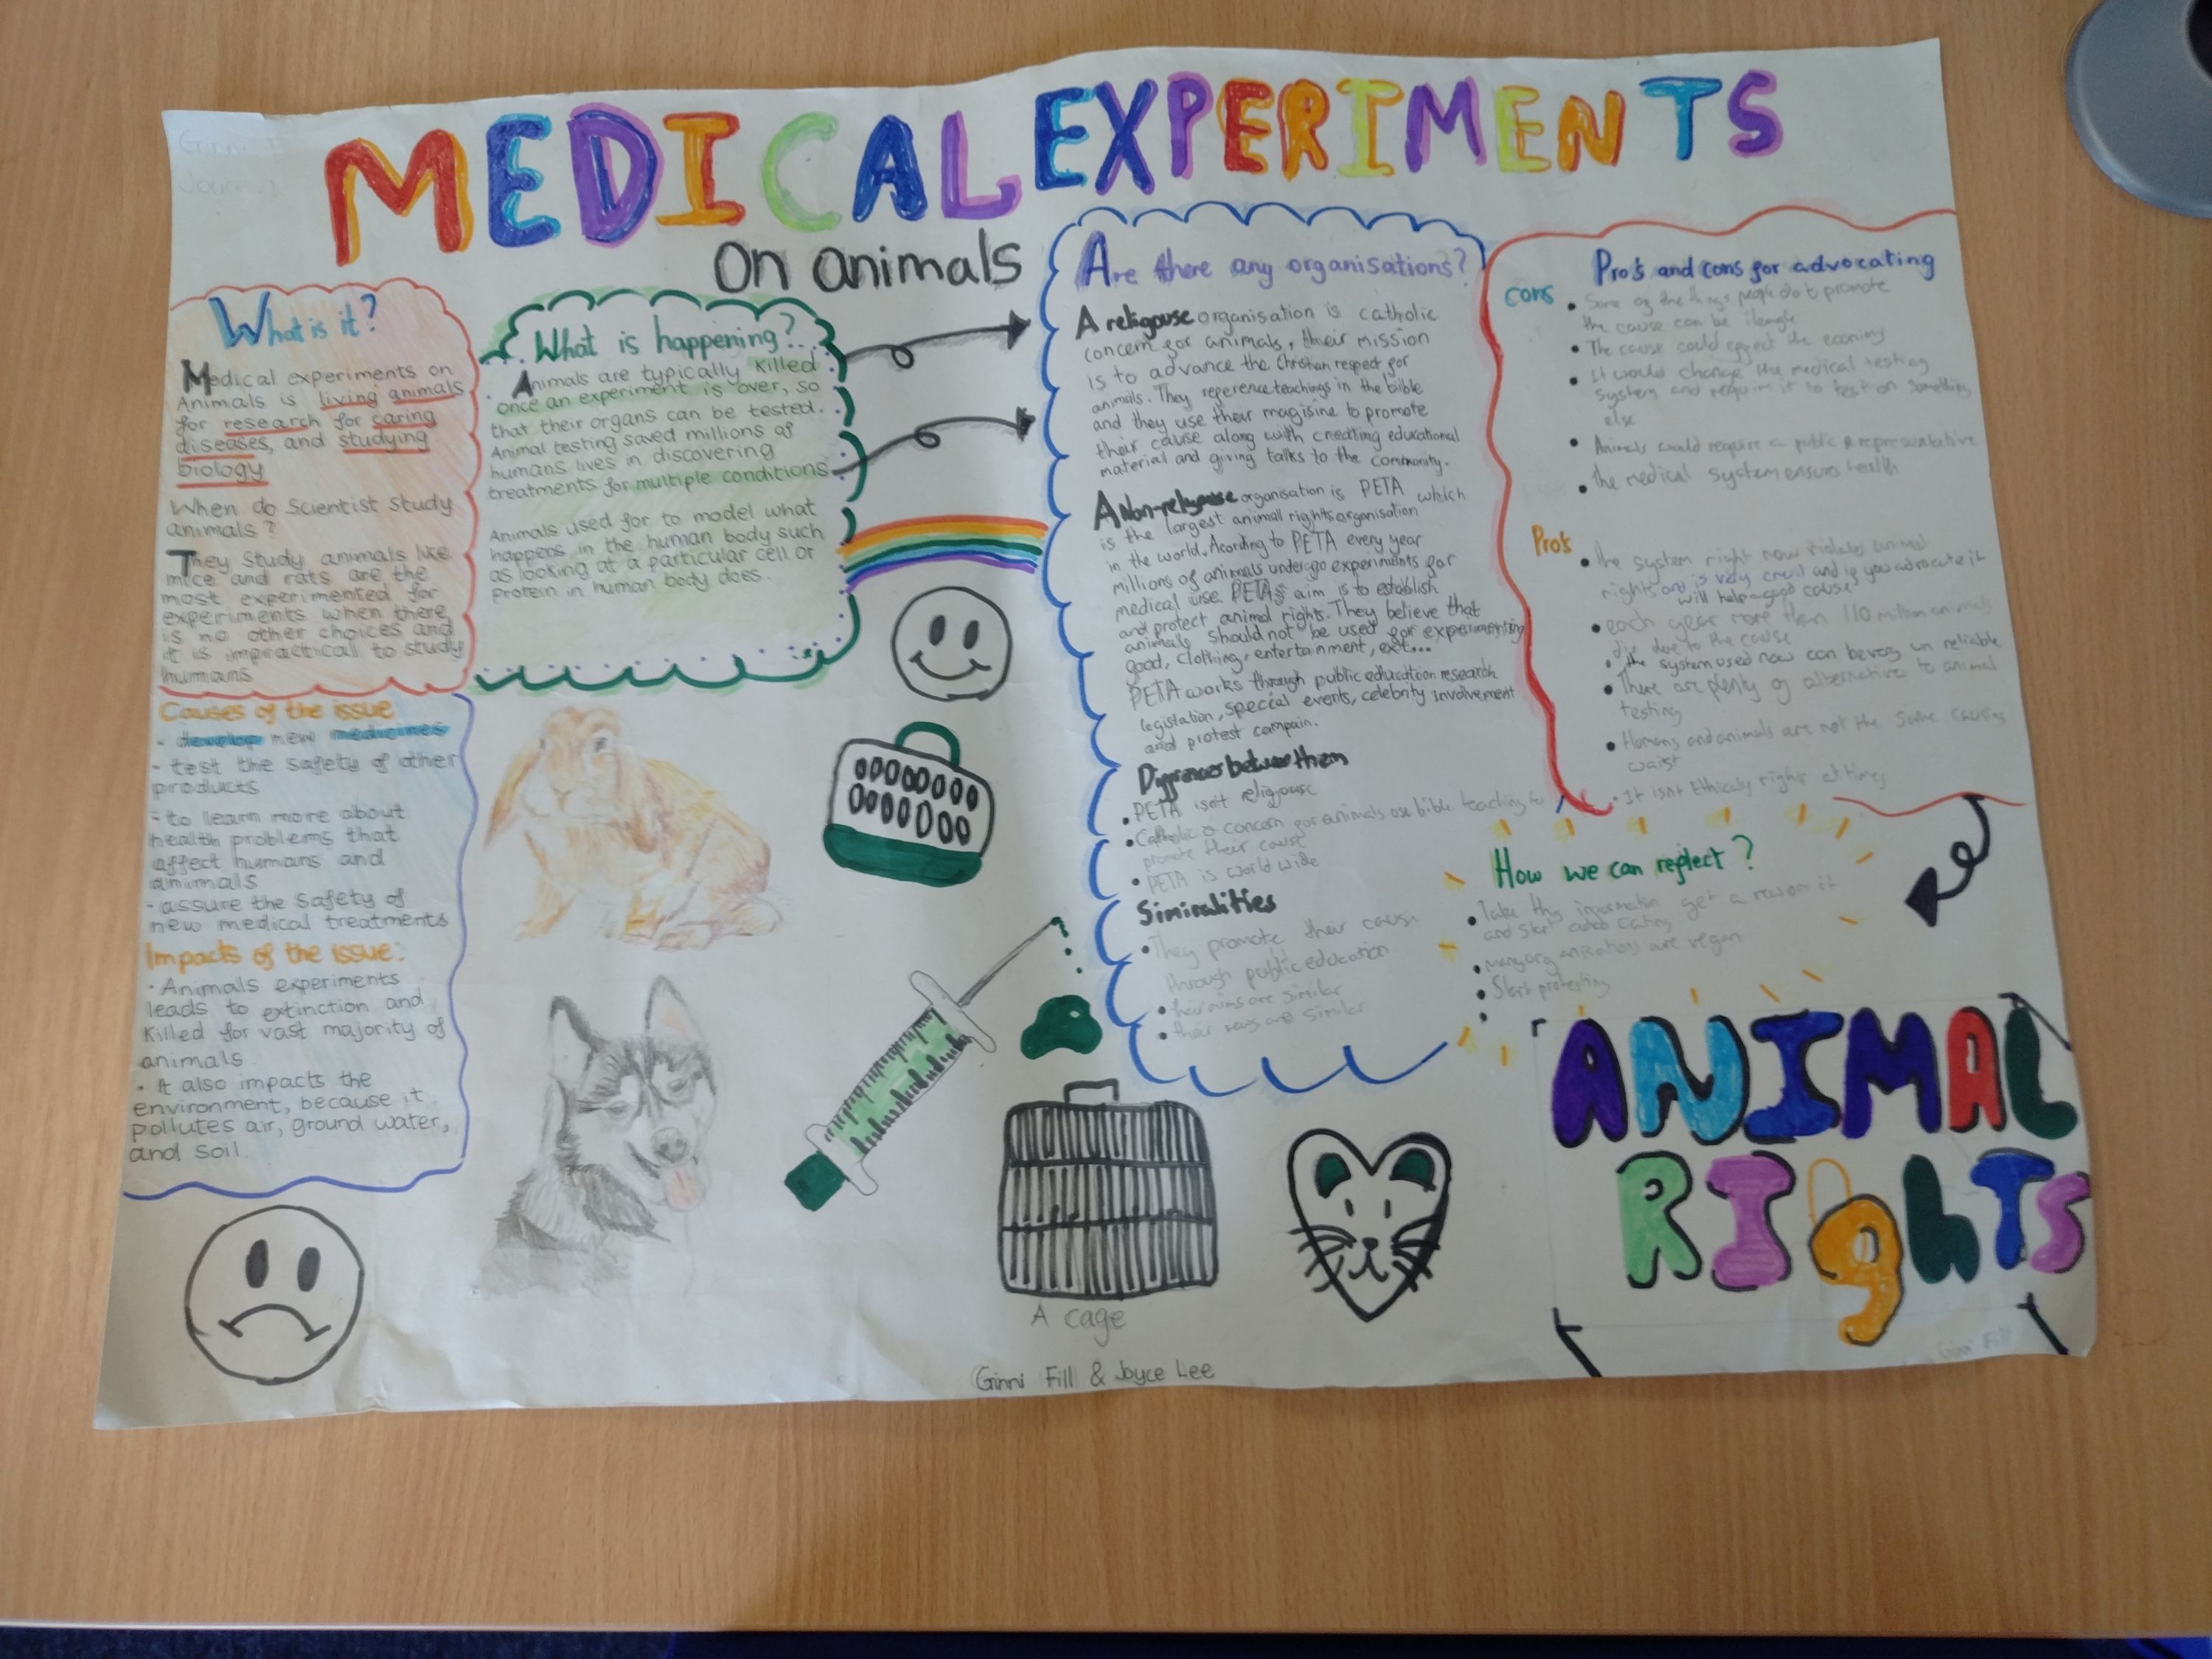 Ginni F
Joyce L
MEDICAL EXPERIMENTS
On animals
What is it?
Medical experiments on
Animals is living animals
for research for caring
diseases, and studying
biology
When do Scientist study
animals?
They study animals like
mice and rats are the
most experimented for
experiments when there
is no other choices and
it is impractical to study
humans
Causes of the issue
- develop new medicines
- test the safety of other
products
- to learn more about
health problems that
affect humans and
animals
- assure the safety of
new medical treatments
Impacts of the issue:
• Animals experiments
leads to extinction and
killed for vast majority of
animals.
• It also impacts the
environment, because it
pollutes air, ground water,
and soil.
What is happening?
Animals are typically killed
once an experiment is over, so
that their organs can be tested.
Animal testing saved millions of
humans lives in discovering
treatments for multiple conditions
Animals used for to model what
happens in the human body such
as looking at a particular cell or
protein in human body does.
Are there any organisations?
A religouse organisation is catholic
concern for animals, their mission
is to advance the Christian respect for
animals. They reference teachings in the bible
and they use their magisine to promote
their cause along with creating educational
material and giving talks to the community.
A Non-religouse organisation is PETA which
is the largest animal rights organisation
in the world. Acording to PETA every year
millions of animals undergo experiments for
medical use. PETA's aim is to establish
and protect animal rights. They believe that
animals should not be used for experimenting
food, clothing, entertainment, ext...
PETA works through public education research
legistation, special events, celebrity involvement
and protest campain.
Differences between them
• PETA isn't religouse
• Catholic concern for animals use bible teaching to
promote their cause
• PETA is world wide
Simimalities
• They promote their cause
through public education
• their aims are similar
• their ways are similar
Pro's and cons for advocating
cons
• Some of the things people do to promote
the cause can be ilengle
• The cause could effect the econimy
• It would change the medical testing
system and require it to test on something
else
• Animals would require a public representative
• The medical system ensures health
Pro's
• the system right now violates animal
rights and is very cruil and if you advocate it
will help a good cause
• each year more than 110 million animals
die due to the cause
• the system used now can be very un reliable
• There are plenty of alternative to animal
testing
• Humans and animals are not the same causing
waist
• It isnt Ethicaly right at times
How we can reflect?
• Take this information get a reason it
and start advocating
• many organisations are vegan
• Start protesting
ANIMAL
RIghTS
A cage
Ginni Fill & Joyce Lee
Ginni Fill